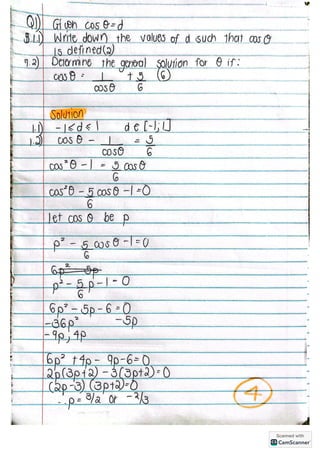 Q1) Given cos θ = d
5.1.1) Write down the values of d such that cos θ
is defined (2)
7.2) Determine the general solution for θ if:
cos θ = 1/cos θ + 5/6 (6)
Solution
1.1) -1 ≤ d ≤ 1 d ∈ [-1; 1]
1.2) cos θ - 1/cos θ = 5/6
cos² θ - 1 = 5/6 cos θ
cos² θ - 5/6 cos θ - 1 = 0
let cos θ be p
p² - 5/6 cos θ - 1 = 0
6p² 5p
p² - 5/6 p - 1 = 0
6p² - 5p - 6 = 0
-36p² -5p
-9p; 4p
6p² + 4p - 9p - 6 = 0
2p(3p+2) - 3(3p+2) = 0
(2p-3) (3p+2) = 0
∴ p = 3/2 or -2/3
4
Scanned with
CS CamScanner